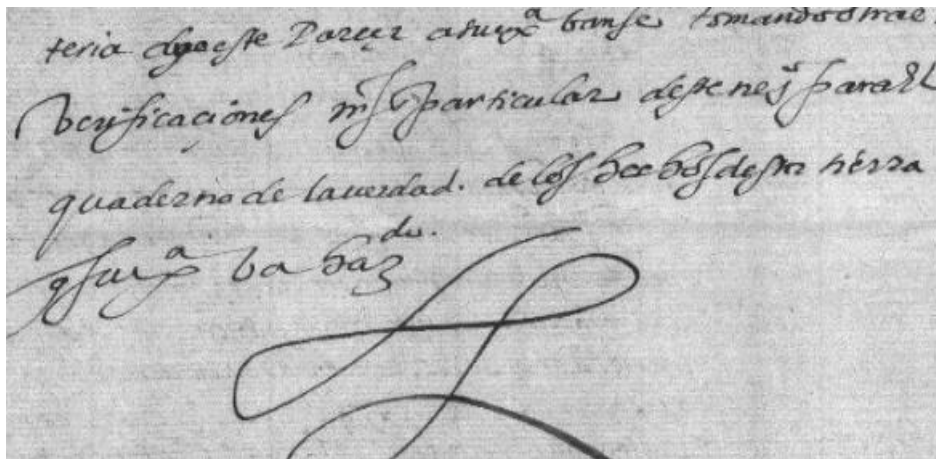 teria dho este Parecer a su sª banse tomando otras
Veryficaciones mˢ particular deste negº para El
quaderno de la verdad. de los hechos desta tierra
q su sª ba hazdᵒ.